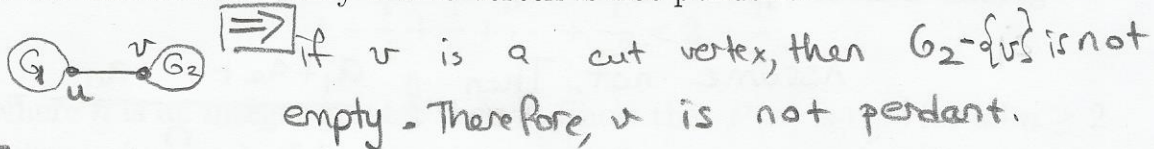 G1 u v G2 ⇒ if v is a cut vertex, then G2-{v} is not
empty. Therefore, v is not pendant.